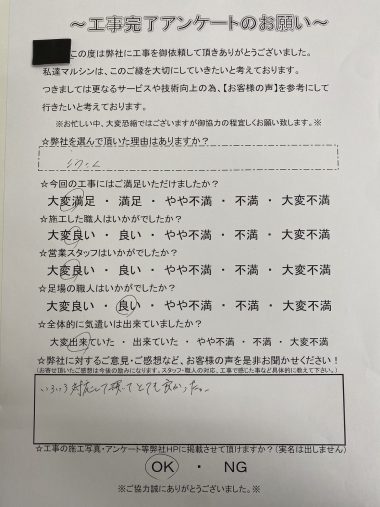 ～工事完了アンケートのお願い～
この度は弊社に工事を御依頼して頂きありがとうございました。
私達マルシンは、このご縁を大切にしていきたいと考えております。
つきましては更なるサービスや技術向上の為、【お客様の声】を参考にして
行きたいと考えております。
※お忙しい中、大変恐縮ではございますが御協力の程宜しくお願い致します。※
☆弊社を選んで頂いた理由はありますか？
☆今回の工事にはご満足いただけましたか？
大変満足 ・ 満足 ・ やや不満 ・ 不満 ・ 大変不満
☆施工した職人はいかがでしたか？
大変良い ・ 良い ・ やや不満 ・ 不満 ・ 大変不満
☆営業スタッフはいかがでしたか？
大変良い ・ 良い ・ やや不満 ・ 不満 ・ 大変不満
☆足場の職人はいかがでしたか？
大変良い ・ 良い ・ やや不満 ・ 不満 ・ 大変不満
☆全体的に気遣いは出来ていましたか？
大変出来ていた ・ 出来ていた ・ やや不満 ・ 不満 ・ 大変不満
☆弊社に対するご意見・ご感想など、お客様の声を是非お聞かせください！
(お寄せ頂いたご感想は今後の励みになります。スタッフ・職人の対応、工事で感じた事など具体的に教えて下さい。)
いろいろ対応して頂いてとても良かった。
☆工事の施工写真・アンケート等弊社HPに掲載させて頂けますか？(実名は出しません)
OK ・ NG
※ご協力誠にありがとうございました。※